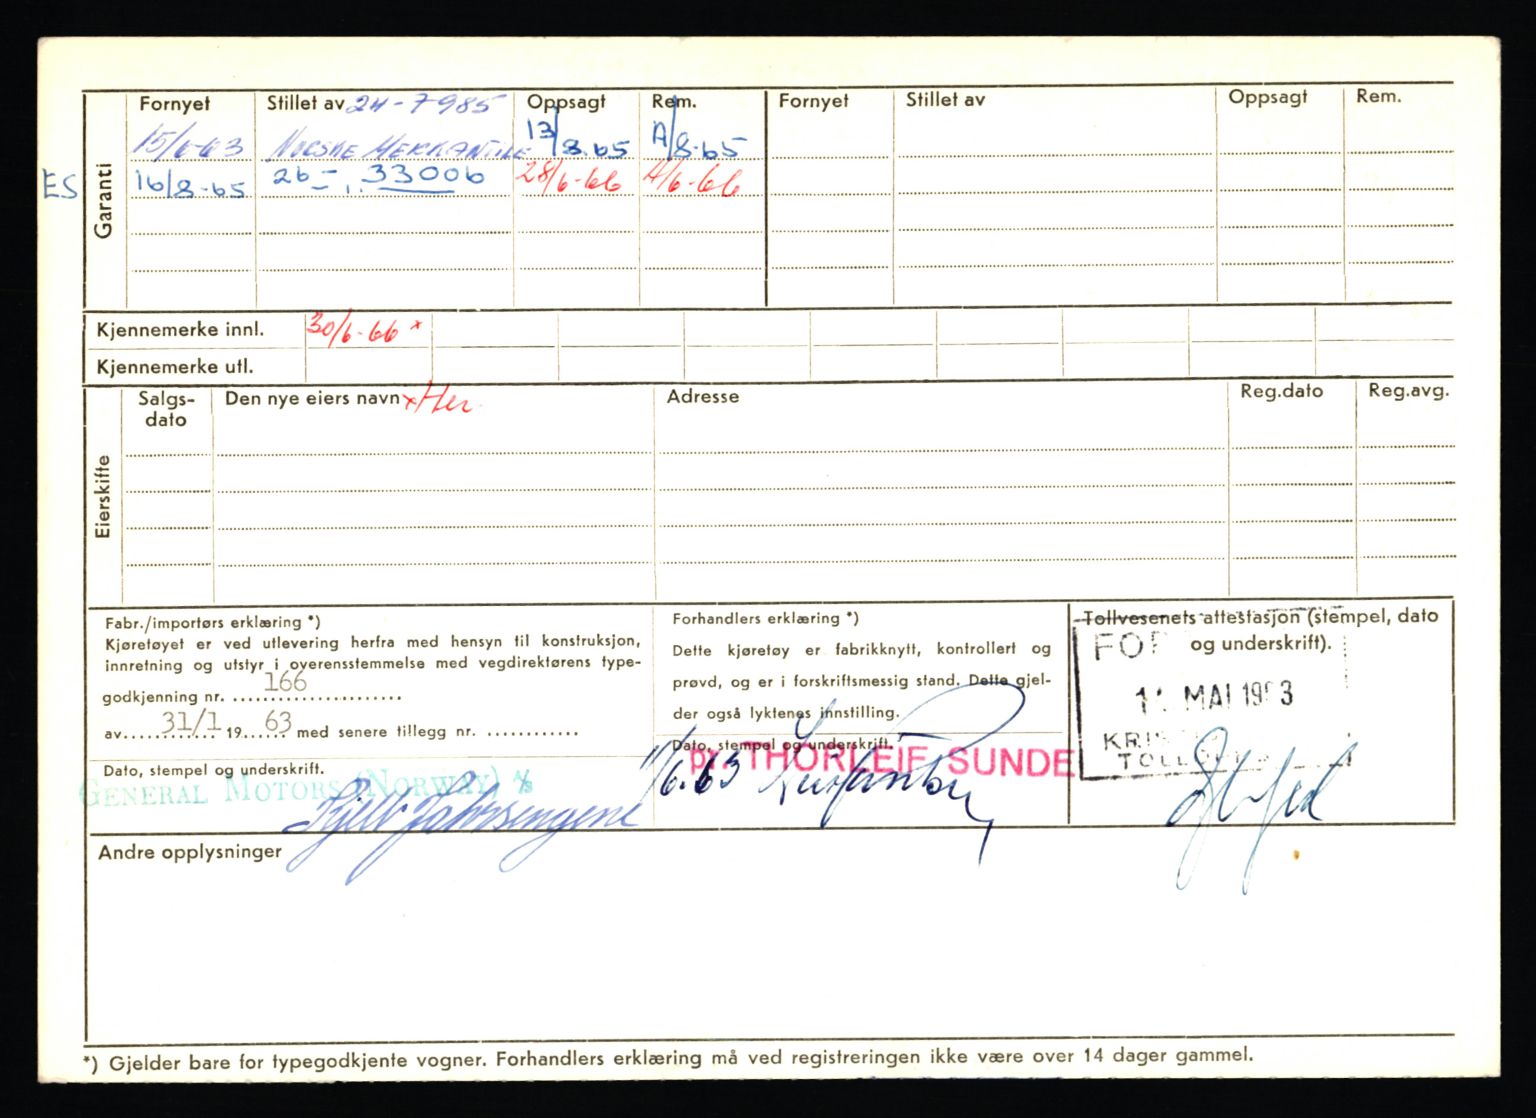 Fornyet Stillet av 24-7985 Oppsagt Rem. Fornyet Stillet av Oppsagt Rem.
15/6-63 NORSKE MERKANTILE 13/8.65 A/8-65
ES 16/8-65 26 - 33006 28/6-66 A/6-66
Garanti
Kjennemerke innl. 30/6-66 x
Kjennemerke utl.
Salgs- Den nye eiers navn x Her Adresse Reg.dato Reg.avg.
dato
Eierskifte
Fabr./importørs erklæring *)
Kjøretøyet er ved utlevering herfra med hensyn til konstruksjon,
innretning og utstyr i overensstemmelse med vegdirektørens type-
godkjenning nr. 166
av 31/1 19 63 med senere tillegg nr.
Dato, stempel og underskrift.
GENERAL MOTORS (NORWAY) A/S
Forhandlers erklæring *)
Dette kjøretøy er fabrikknytt, kontrollert og
prøvd, og er i forskriftsmessig stand. Dette gjel-
der også lyktenes innstilling.
Dato, stempel og underskrift.
11/6.63 pr. THORLEIF SUNDE
Tollvesenets attestasjon (stempel, dato
og underskrift).
MAI
Andre opplysninger
*) Gjelder bare for typegodkjente vogner. Forhandlers erklæring må ved registreringen ikke være over 14 dager gammel.